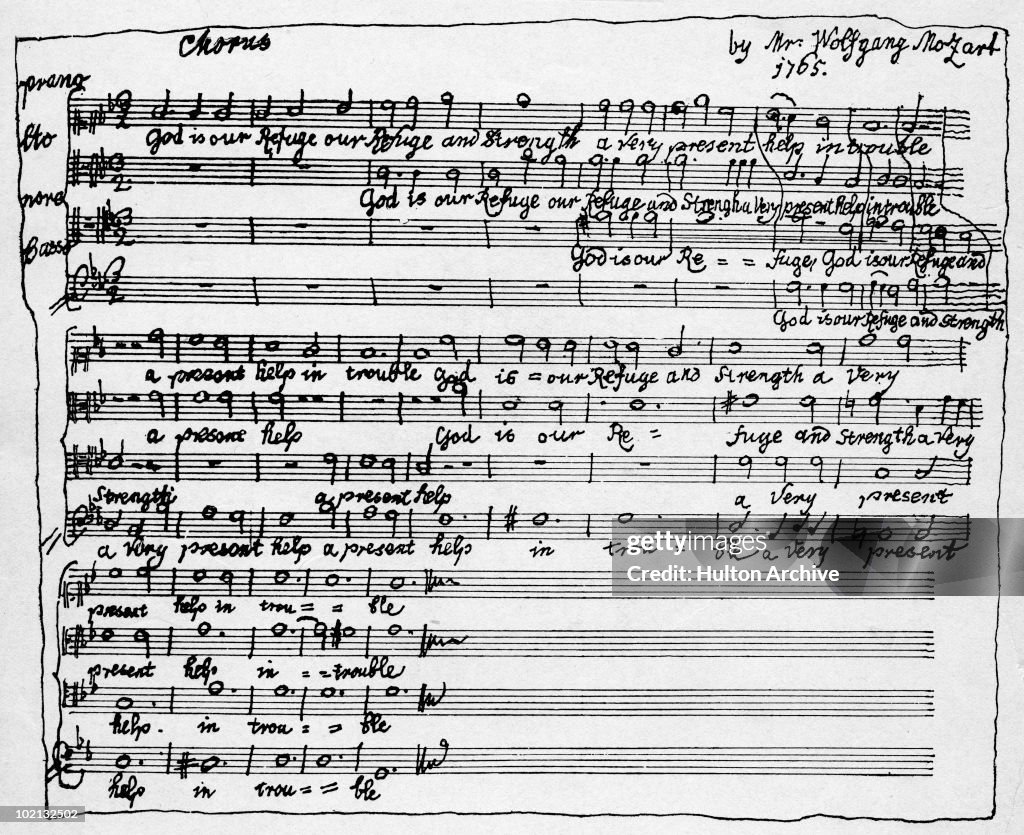 Chorus
by Mr. Wolfgang Mozart
1765.
prano
lto
God is our Refuge our Refuge and Strength a very present help in trouble
nore
God is our Refuge our Refuge and Strengh a very present help in trouble
Basso
God is our Re = = fuge, God is our Refuge and
God is our Refuge and Strength
a present help in trouble God is = our Refuge and Strength a very
a present help God is our Re = fuge and Strength a very
Strength a present help a very present
a very present help a present help in trou = ble a very present
present help in trou = = ble
present help in = = trouble
help. in trou = = ble
help in trou = = ble
gettyimages
Credit: Hulton Archive
102132502